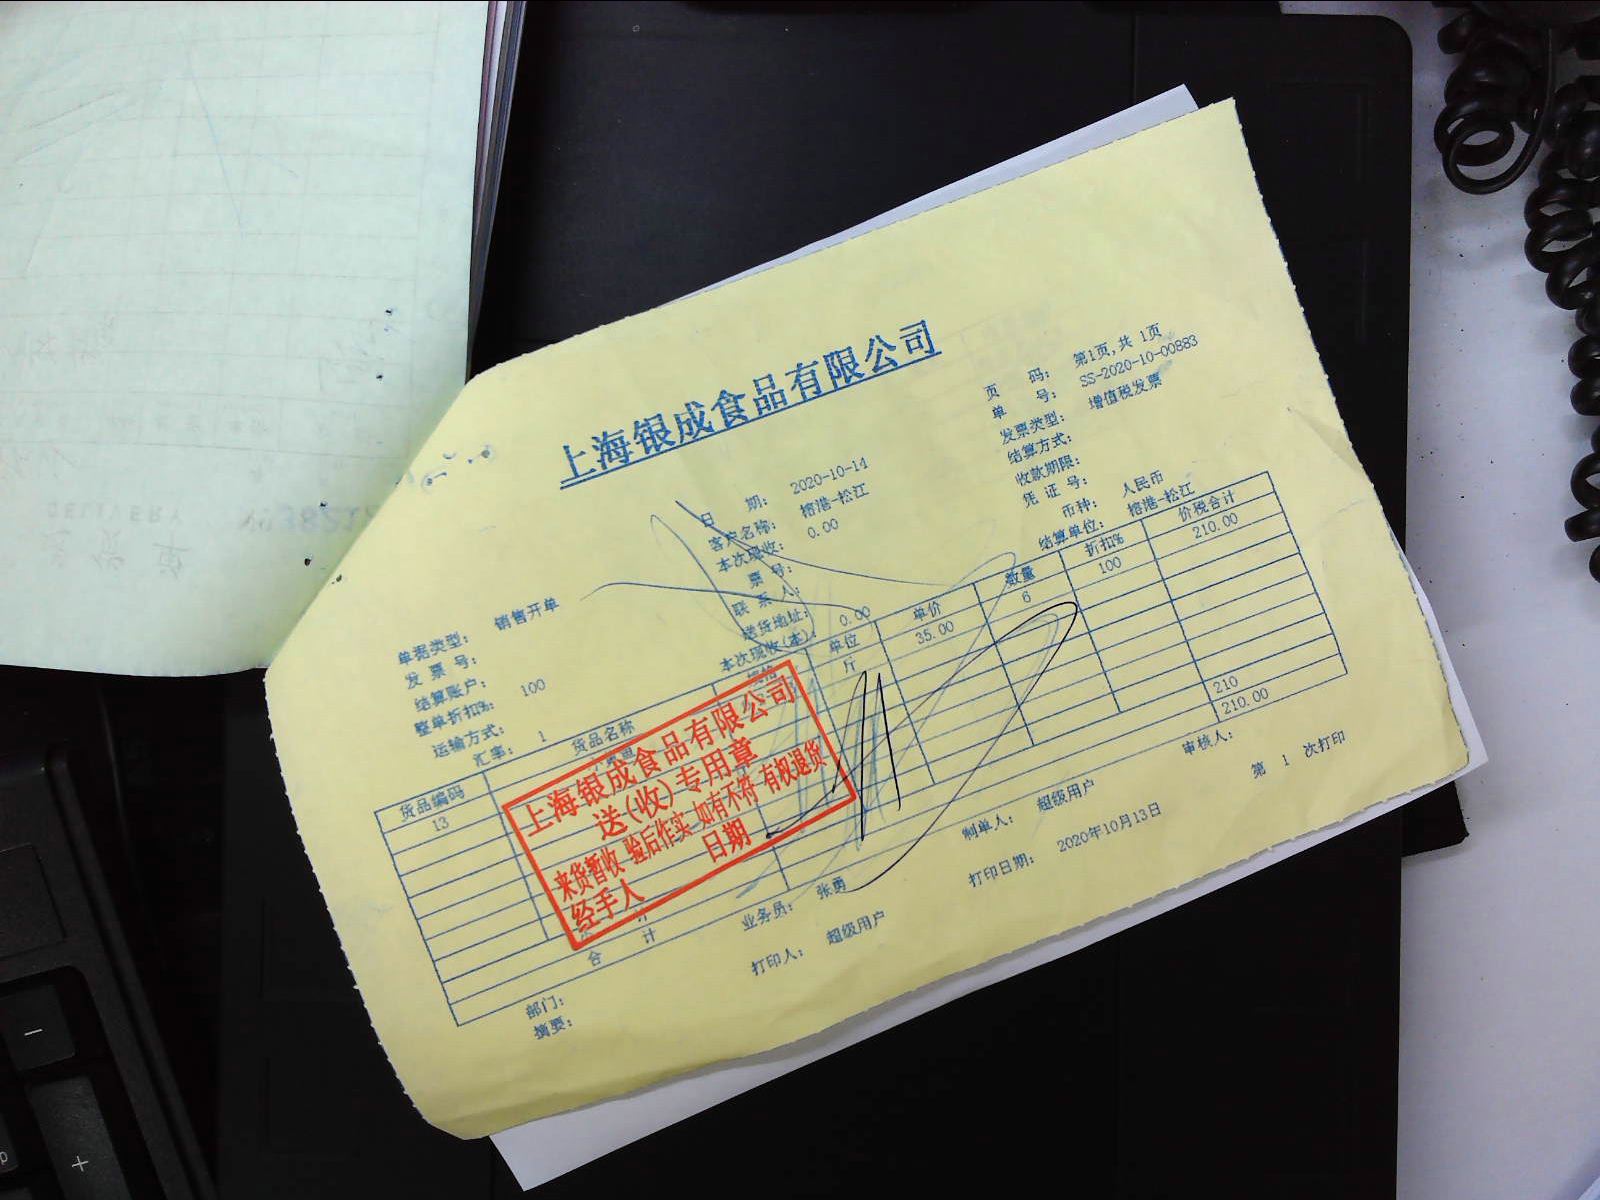 上海银成食品有限公司
页 码: 第1页,共 1页
单 号: SS-2020-10-00883
发票类型: 增值税发票
结算方式:
收款期限:
凭 证 号:
币种: 人民币
结算单位: 榕港-松江
日 期: 2020-10-14
客户名称: 榕港-松江
本次现收: 0.00
票 号:
联 系 人:
送货地址:
本次现收(本): 0.00
单据类型: 销售开单
发 票 号:
结算账户:
整单折扣%: 100
运输方式:
汇率: 1
货品编码 货品名称 规格 单位 单价 数量 折扣% 价税合计
13 斤 35.00 6 100 210.00
计 210
合 计 210.00
上海银成食品有限公司
送(收)专用章
来货暂收 验后作实 如有不符 有权退货
经手人 日期
部门: 业务员: 张勇 制单人: 超级用户 审核人:
摘要: 打印人: 超级用户 打印日期: 2020年10月13日 第 1 次打印
DELIVERY